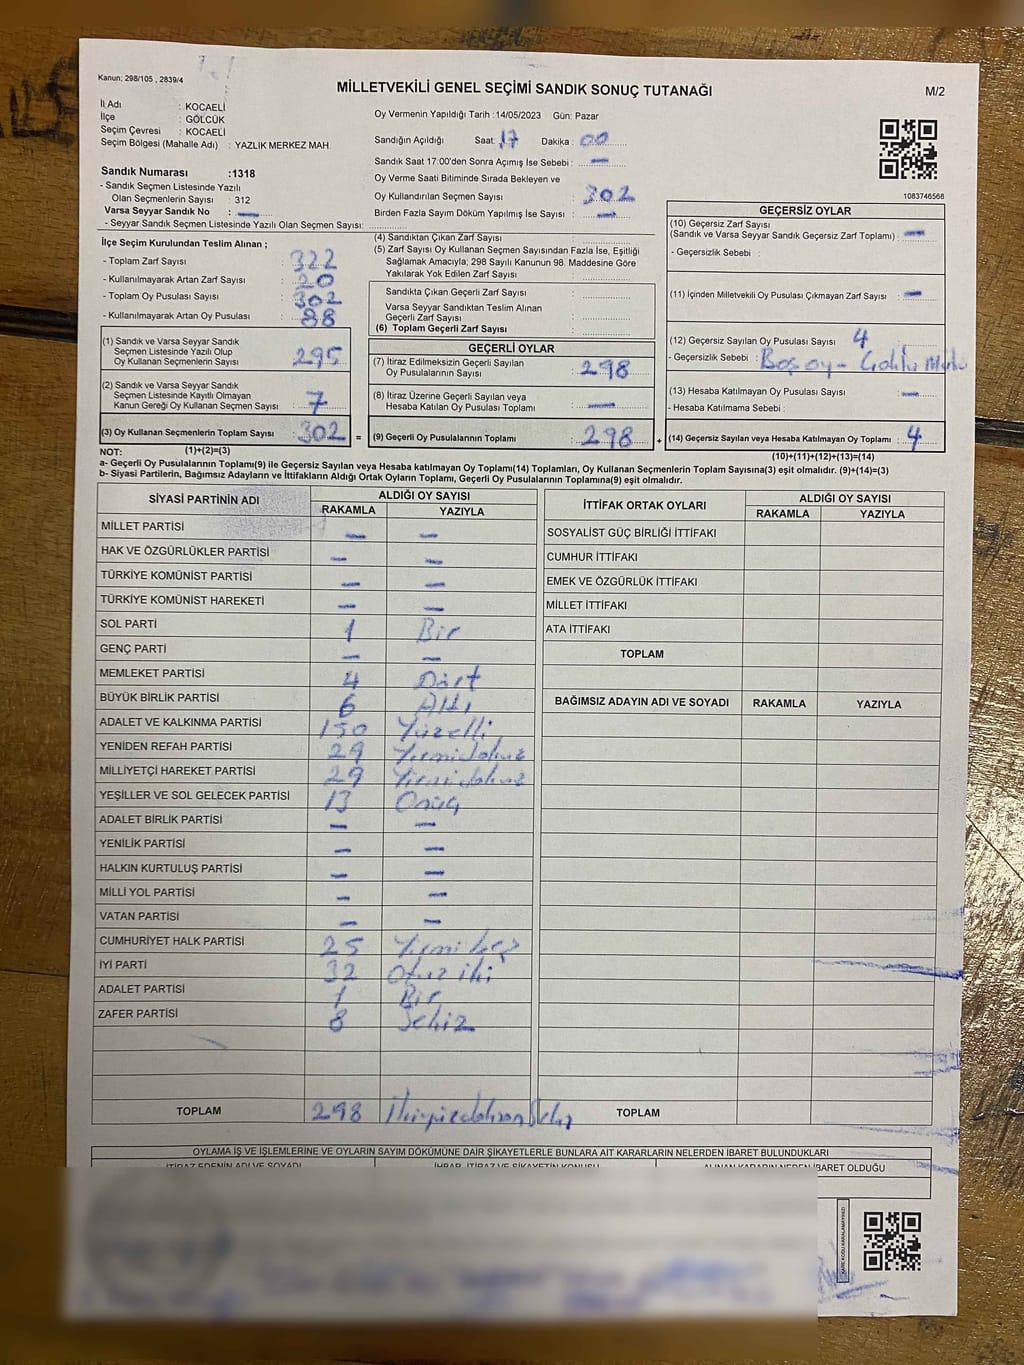 Kanun; 298/105 , 2839/4
MİLLETVEKİLİ GENEL SEÇİMİ SANDIK SONUÇ TUTANAĞI
M/2
İl Adı : KOCAELİ
İlçe : GÖLCÜK
Seçim Çevresi : KOCAELİ
Seçim Bölgesi (Mahalle Adı) : YAZLIK MERKEZ MAH.
Oy Vermenin Yapıldığı Tarih :14/05/2023 Gün: Pazar
Sandığın Açıldığı Saat: 17 Dakika : 00
Sandık Saat 17:00'den Sonra Açımış İse Sebebi : —
Oy Verme Saati Bitiminde Sırada Bekleyen ve
Oy Kullandırılan Seçmen Sayısı : 302
Birden Fazla Sayım Döküm Yapılmış İse Sayısı : —
Sandık Numarası :1318
- Sandık Seçmen Listesinde Yazılı
Olan Seçmenlerin Sayısı : 312
Varsa Seyyar Sandık No : —
- Seyyar Sandık Seçmen Listesinde Yazılı Olan Seçmen Sayısı:
1083746568
İlçe Seçim Kurulundan Teslim Alınan ;
- Toplam Zarf Sayısı : 322
- Kullanılmayarak Artan Zarf Sayısı : 20
- Toplam Oy Pusulası Sayısı : 302
- Kullanılmayarak Artan Oy Pusulası : 88
(1) Sandık ve Varsa Seyyar Sandık
Seçmen Listesinde Yazılı Olup
Oy Kullanan Seçmenlerin Sayısı : 295
(2) Sandık ve Varsa Seyyar Sandık
Seçmen Listesinde Kayıtlı Olmayan
Kanun Gereği Oy Kullanan Seçmen Sayısı : 7
(3) Oy Kullanan Seçmenlerin Toplam Sayısı : 302 =
(4) Sandıktan Çıkan Zarf Sayısı :
(5) Zarf Sayısı Oy Kullanan Seçmen Sayısından Fazla İse, Eşitliği
Sağlamak Amacıyla; 298 Sayılı Kanunun 98. Maddesine Göre
Yakılarak Yok Edilen Zarf Sayısı :
Sandıkta Çıkan Geçerli Zarf Sayısı :
Varsa Seyyar Sandıktan Teslim Alınan
Geçerli Zarf Sayısı :
(6) Toplam Geçerli Zarf Sayısı :
GEÇERLİ OYLAR
(7) İtiraz Edilmeksizin Geçerli Sayılan
Oy Pusulalarının Sayısı : 298
(8) İtiraz Üzerine Geçerli Sayılan veya
Hesaba Katılan Oy Pusulası Toplamı : —
(9) Geçerli Oy Pusulalarının Toplamı : 298 +
GEÇERSİZ OYLAR
(10) Geçersiz Zarf Sayısı
(Sandık ve Varsa Seyyar Sandık Geçersiz Zarf Toplamı) : —
- Geçersizlik Sebebi :
(11) İçinden Milletvekili Oy Pusulası Çıkmayan Zarf Sayısı : —
(12) Geçersiz Sayılan Oy Pusulası Sayısı : 4
- Geçersizlik Sebebi : Boş oy -
(13) Hesaba Katılmayan Oy Pusulası Sayısı : —
- Hesaba Katılmama Sebebi :
(14) Geçersiz Sayılan veya Hesaba Katılmayan Oy Toplamı : 4
NOT: (1)+(2)=(3)
(10)+(11)+(12)+(13)=(14)
a- Geçerli Oy Pusulalarının Toplamı(9) ile Geçersiz Sayılan veya Hesaba katılmayan Oy Toplamı(14) Toplamları, Oy Kullanan Seçmenlerin Toplam Sayısına(3) eşit olmalıdır. (9)+(14)=(3)
b- Siyasi Partilerin, Bağımsız Adayların ve İttifakların Aldığı Ortak Oyların Toplamı, Geçerli Oy Pusulalarının Toplamına(9) eşit olmalıdır.
SİYASİ PARTİNİN ADI ALDIĞI OY SAYISI
RAKAMLA YAZIYLA
MİLLET PARTİSİ — —
HAK VE ÖZGÜRLÜKLER PARTİSİ — —
TÜRKİYE KOMÜNİST PARTİSİ — —
TÜRKİYE KOMÜNİST HAREKETİ — —
SOL PARTİ 1 Bir
GENÇ PARTİ — —
MEMLEKET PARTİSİ 4 Dört
BÜYÜK BİRLİK PARTİSİ 6 Altı
ADALET VE KALKINMA PARTİSİ 150 Yüzelli
YENİDEN REFAH PARTİSİ 29 Yirmidokuz
MİLLİYETÇİ HAREKET PARTİSİ 29 Yirmidokuz
YEŞİLLER VE SOL GELECEK PARTİSİ 13 Onüç
ADALET BİRLİK PARTİSİ — —
YENİLİK PARTİSİ — —
HALKIN KURTULUŞ PARTİSİ — —
MİLLİ YOL PARTİSİ — —
VATAN PARTİSİ — —
CUMHURİYET HALK PARTİSİ 25 Yirmi beş
İYİ PARTİ 32 Otuz iki
ADALET PARTİSİ 1 Bir
ZAFER PARTİSİ 8 Sekiz
TOPLAM 298 İkiyüzdoksan Sekiz
İTTİFAK ORTAK OYLARI ALDIĞI OY SAYISI
RAKAMLA YAZIYLA
SOSYALİST GÜÇ BİRLİĞİ İTTİFAKI
CUMHUR İTTİFAKI
EMEK VE ÖZGÜRLÜK İTTİFAKI
MİLLET İTTİFAKI
ATA İTTİFAKI
TOPLAM
BAĞIMSIZ ADAYIN ADI VE SOYADI RAKAMLA YAZIYLA
TOPLAM
OYLAMA İŞ VE İŞLEMLERİNE VE OYLARIN SAYIM DÖKÜMÜNE DAİR ŞİKAYETLERLE BUNLARA AİT KARARLARIN NELERDEN İBARET BULUNDUKLARI
İTİRAZ EDENİN ADI VE SOYADI İHBAR, İTİRAZ VE ŞİKAYETİN KONUSU ALINAN KARARIN NEDEN İBARET OLDUĞU